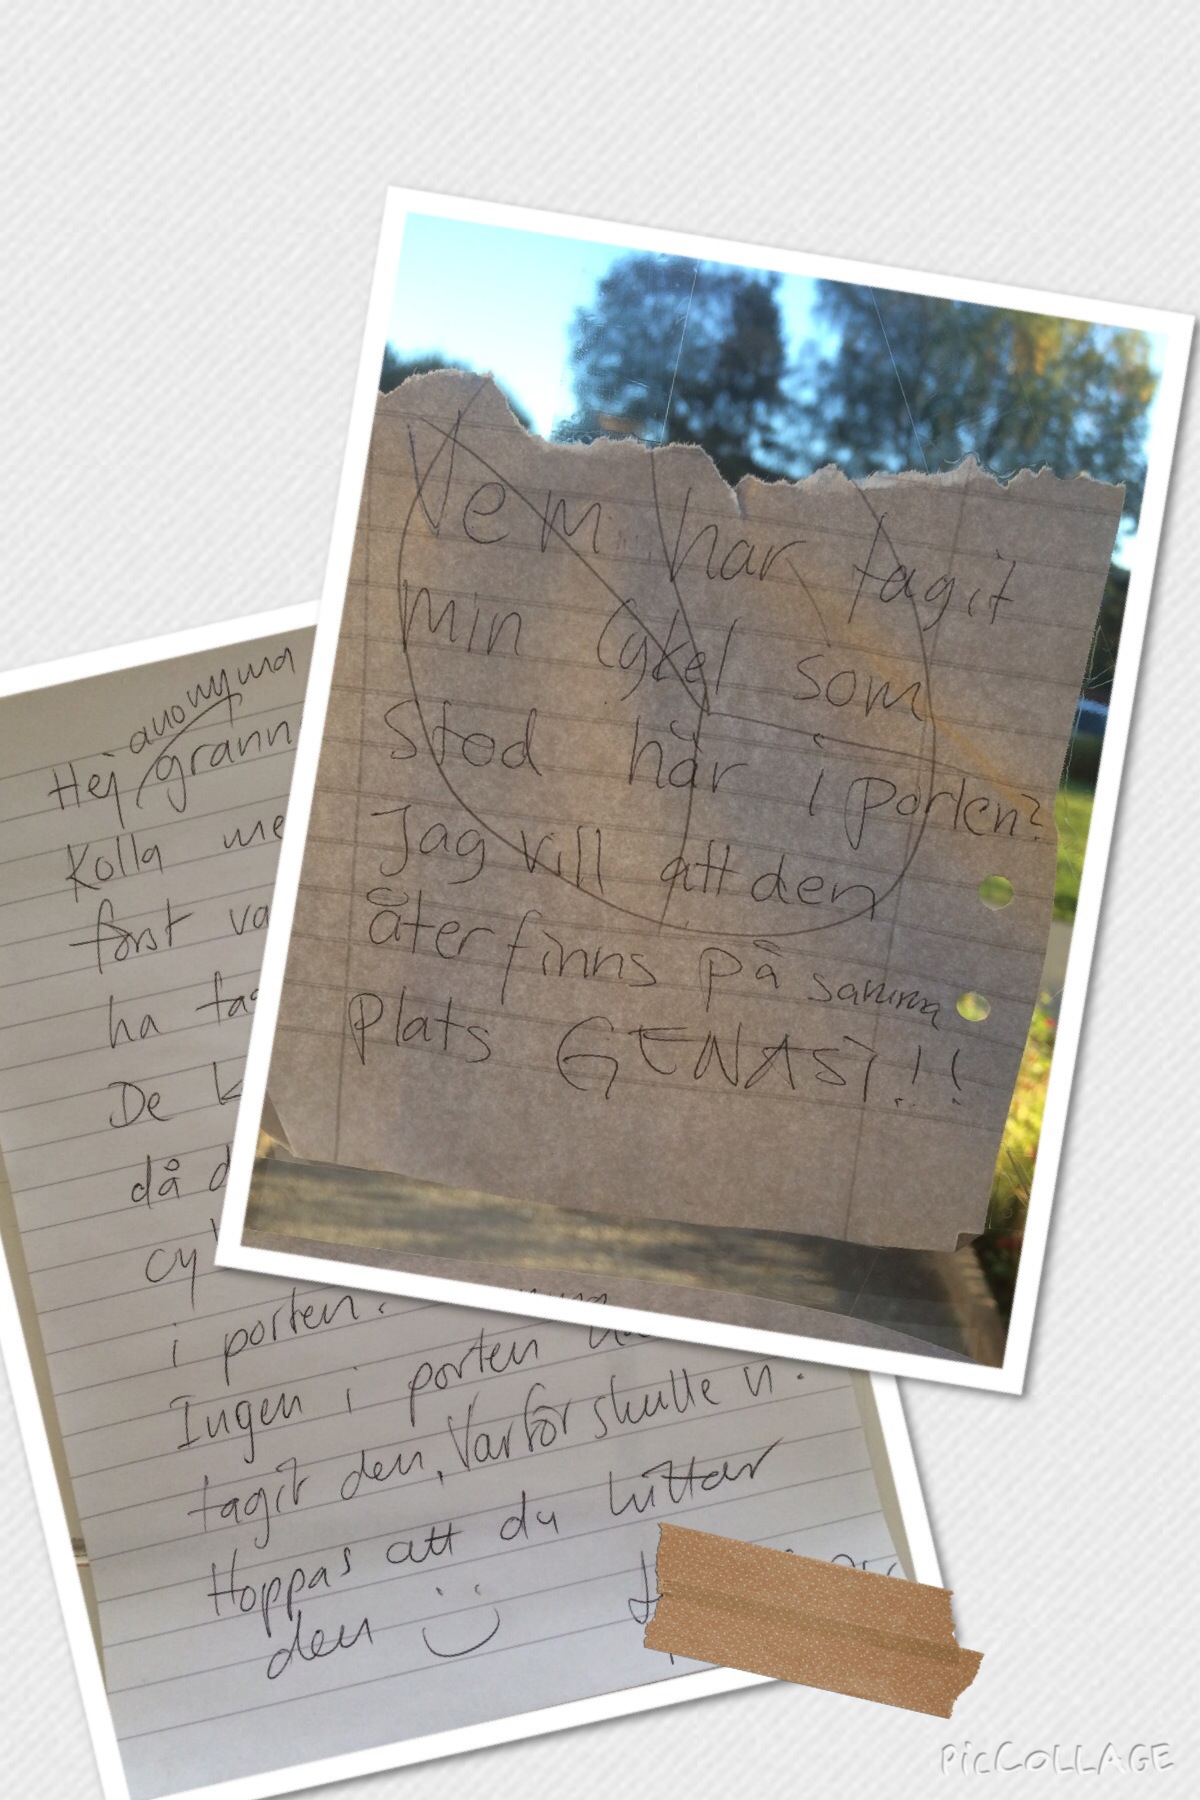 Vem har tagit
min cykel som
stod här i porten?
Jag vill att den
återfinns på samma
plats GENAST!!
anonyma
Hej grann
Kolla me
först va
ha tag
De k
då d
cy
i porten.
Ingen i porten
tagit den, Varför skulle vi.
Hoppas att du hittar
den
PicCOLLAGE